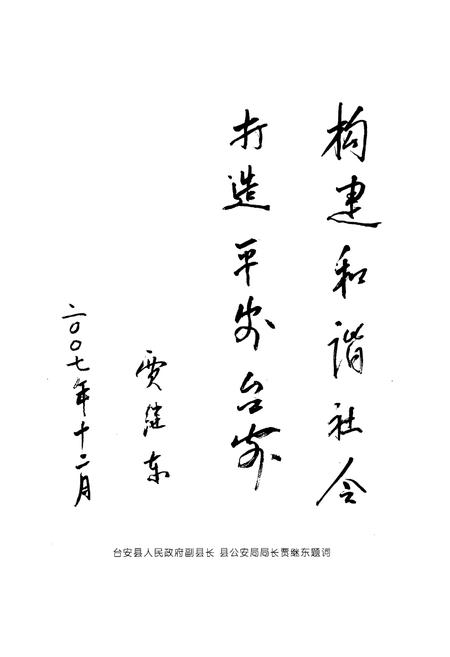 构建和谐社会
打造平安台安
贾继东
二〇〇七年十二月
台安县人民政府副县长 县公安局局长贾继东题词